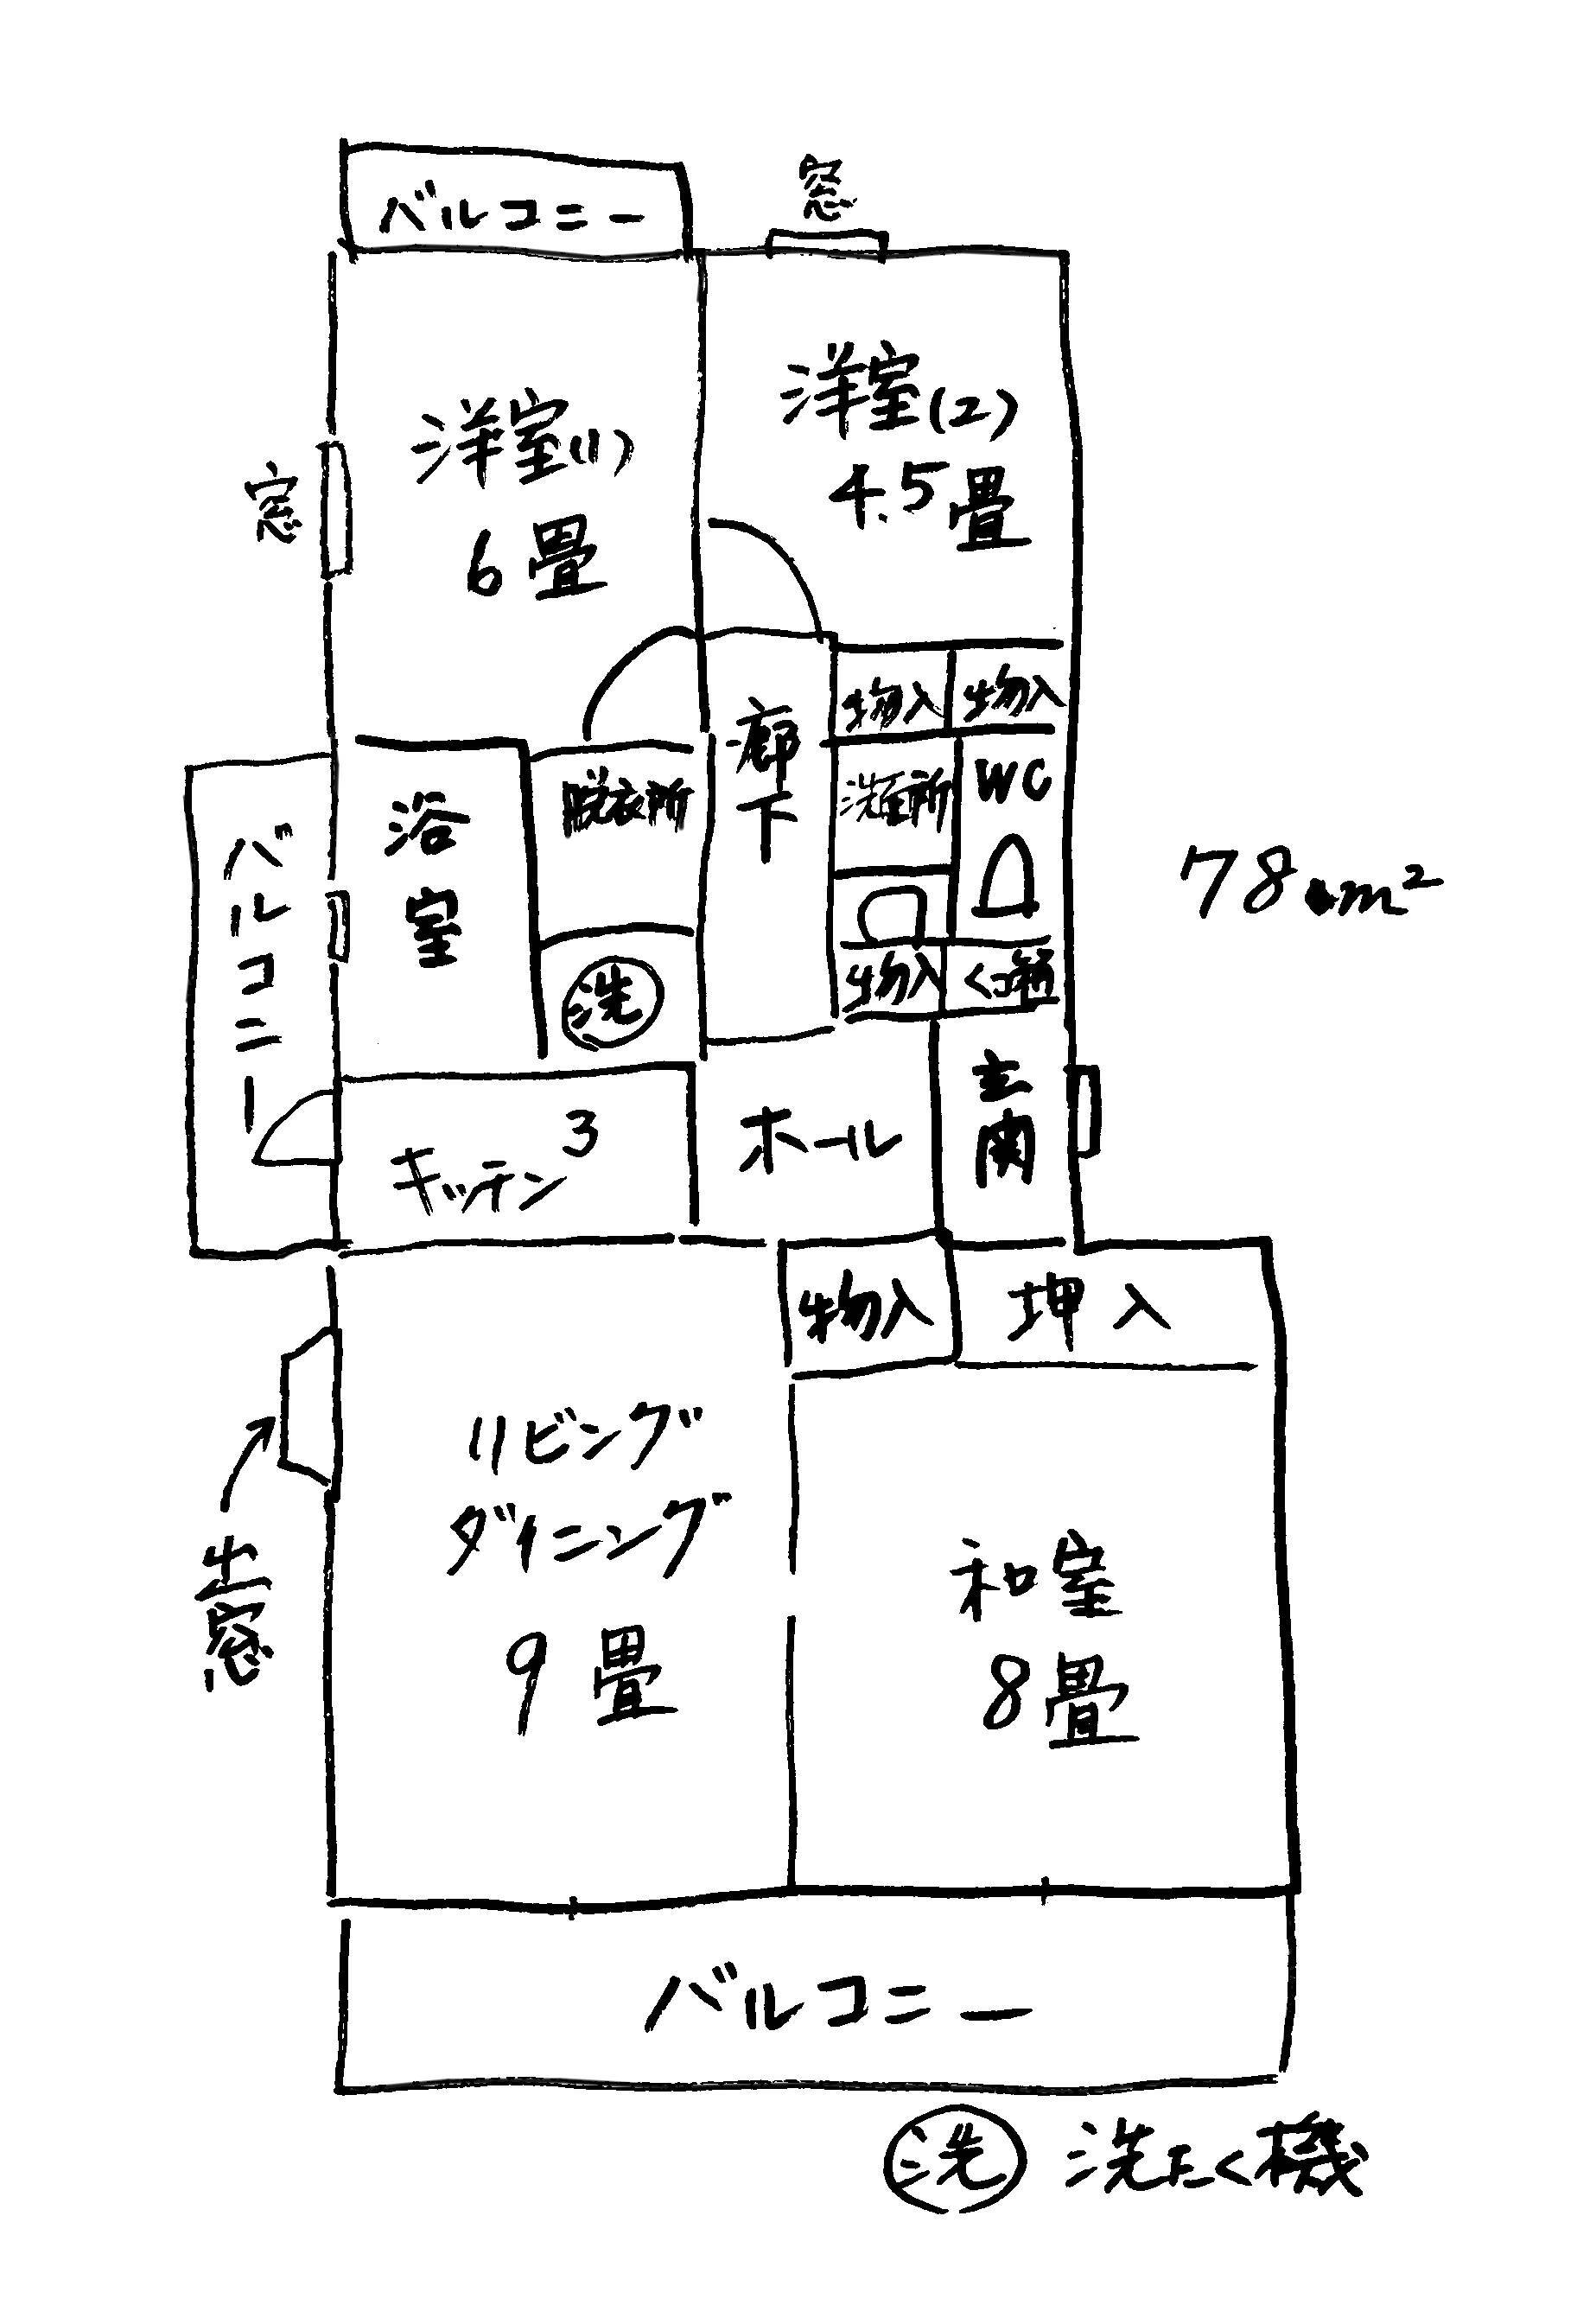 バルコニー
窓
洋室(1)
6畳
洋室(2)
4.5畳
窓
物入
物入
廊下
浴室
脱衣所
洗面所
WC
バルコニー
78m²
洗
物入
くつ箱
キッチン3
ホール
玄関
物入
押入
リビング
ダイニング
9畳
出窓
和室
8畳
バルコニー
洗 洗たく機